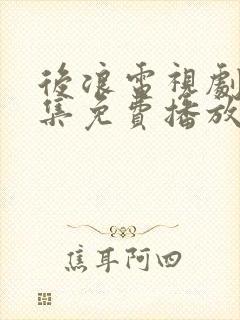 後浪電視劇
集免費播放
焦耳阿四